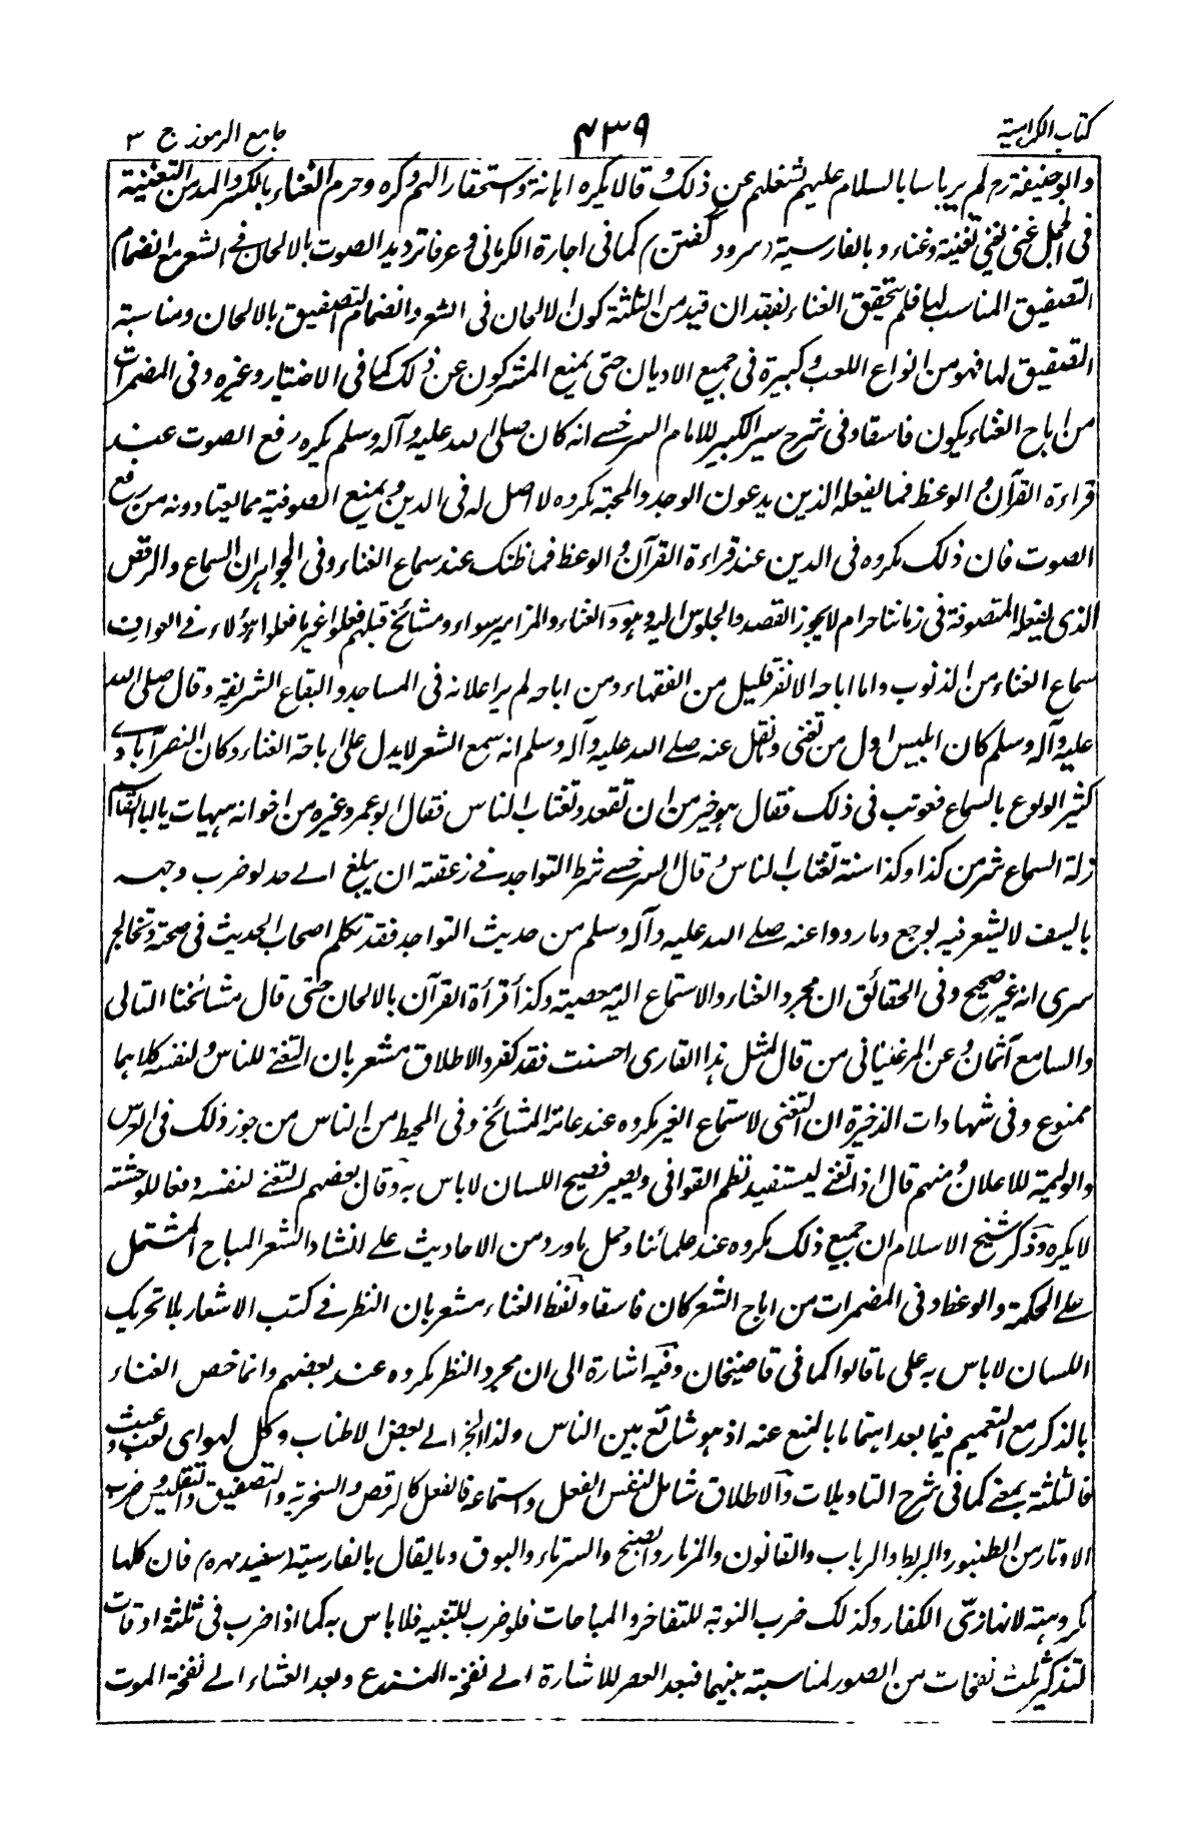 كتاب الكراهية ٤٣٩ جامع الرموز ج ٣
وابو حنيفة رح لم ير باسا بالسلام عليهم تشغلهم عن ذلك وقالا يكره اهانة واستحقارا لهم وكره وحرم الغناء بالكسر والمد من التغنية
فى المجمل غنى يغنى تغنية وغناء وبالفارسية (سرود گفتن) كما فى اجارة الكرمانى وعرفا ترديد الصوت بالالحان فى الشعر مع انضمام
التصفيق المناسب لها فلم يتحقق الغناء بفقدان قيد من الثلثة كون الالحان فى الشعر وانضمام التصفيق بالالحان ومناسبة
التصفيق لها فهو من انواع اللعب وكبيرة فى جميع الاديان حتى يمنع المشركون عن ذلك كما فى الاختيار وغيره وفى المضمرات
من اباح الغناء يكون فاسقا وفى شرح سير الكبير للامام السرخسى انه كان صلى الله عليه وآله وسلم يكره رفع الصوت عند
قراءة القرآن والوعظ فما يفعله الذين يدعون الوجد والمحبة مكروه لا اصل له فى الدين ويمنع الصوفية مما يعتادونه من رفع
الصوت فان ذلك مكروه فى الدين عند قراءة القرآن والوعظ فما ظنك عند سماع الغناء وفى الجواهر ان السماع والرقص
الذى يفعله المتصوفة فى زماننا حرام لا يجوز القصد والجلوس اليه وهو والغناء والمزامير سواء ومشائخ قبلهم فعلوا غير ما فعلوا هؤلاء فى العوارف
سماع الغناء من الذنوب واما اباحه الا نفر قليل من الفقهاء ومن اباحه لم ير اعلانه فى المساجد والبقاع الشريفة وقال صلى الله
عليه وآله وسلم كان ابليس اول من تغنى ونقل عنه صلے الله عليه وآله وسلم انه سمع الشعر لا يدل على اباحة الغناء وكان النصرآبادے
كثير الولوع بالسماع فعوتب فى ذلك فقال هو خير من ان تقعد وتغتاب الناس فقال ابو عمرو وغيره من اخوانه هيهات يا ابا القاسم
زلة السماع شر من كذا وكذا سنة تغتاب الناس وقال السرخسے شرط التواجد فے زعقته ان يبلغ الے حد لو ضرب وجهه
بالسيف لا يشعر فيه بوجع وما رووا عنه صلے الله عليه وآله وسلم من حديث التواجد فقد تكلم اصحاب الحديث فى صحته وتخالج
سرى انه غير صحيح وفى الحقائق ان مجرد الغناء والاستماع اليه معصية وكذا قرأة القرآن بالالحان حتى قال مشائخنا التالى
والسامع آثمان وعن المرغينانى من قال لمثل هذا القارى احسنت فقد كفر والاطلاق مشعر بان التغنے للناس ولنفسه كلاهما
ممنوع وفى شهادات الذخيرة ان التغنى لاستماع الغير مكروه عند عامة المشائخ وفى المحيط من الناس من جوز ذلك فى العرس
والوليمة للاعلان ومنهم قال اذا تغنے ليستفيد نظم القوافى ويصير فصيح اللسان لا باس به وقال بعضهم التغنے لنفسه دفعا للوحشة
لا يكره وذكر شيخ الاسلام ان جميع ذلك مكروه عند علمائنا وحمل ما ورد من الاحاديث على انشاد الشعر المباح المشتمل
على الحكمة والوعظ وفى المضمرات من اباح الشعر كان فاسقا ولفظ الغناء مشعر بان النظر فے كتب الاشعار بلا تحريك
اللسان لا باس به على ما قالوا كما فى قاضيخان وفيه اشارة الى ان مجرد النظر مكروه عند بعضهم وانما خص الغناء
بالذكر مع التعميم فيما بعد اهتماما بالمنع عنه اذ هو شائع بين الناس ولذا انجر الے بعض الاطناب وكل لهو اى لعب وعبث
فالثلثة بمعنے كما فى شرح التاويلات والاطلاق شامل لنفس الفعل واستماعه فالفعل كالرقص والسخرية والتصفيق والتقليس وضرب
الاوتار من الطنبور والبربط والرباب والقانون والمزمار والصنج والسرناء والبوق وما يقال بالفارسية (سفيد مهره) فان كلها
مكروهة لانها زىّ الكفار وكذلك ضرب النوبة للتفاخر والمباحات فلو ضرب للتنبيه فلا باس به كما اذا ضرب فى ثلثة اوقات
لتذكير ثلث نفخات من الصور لمناسبة بينهما فبعد العصر للاشارة الے نفخة الفزع وبعد العشاء الے نفخة الموت